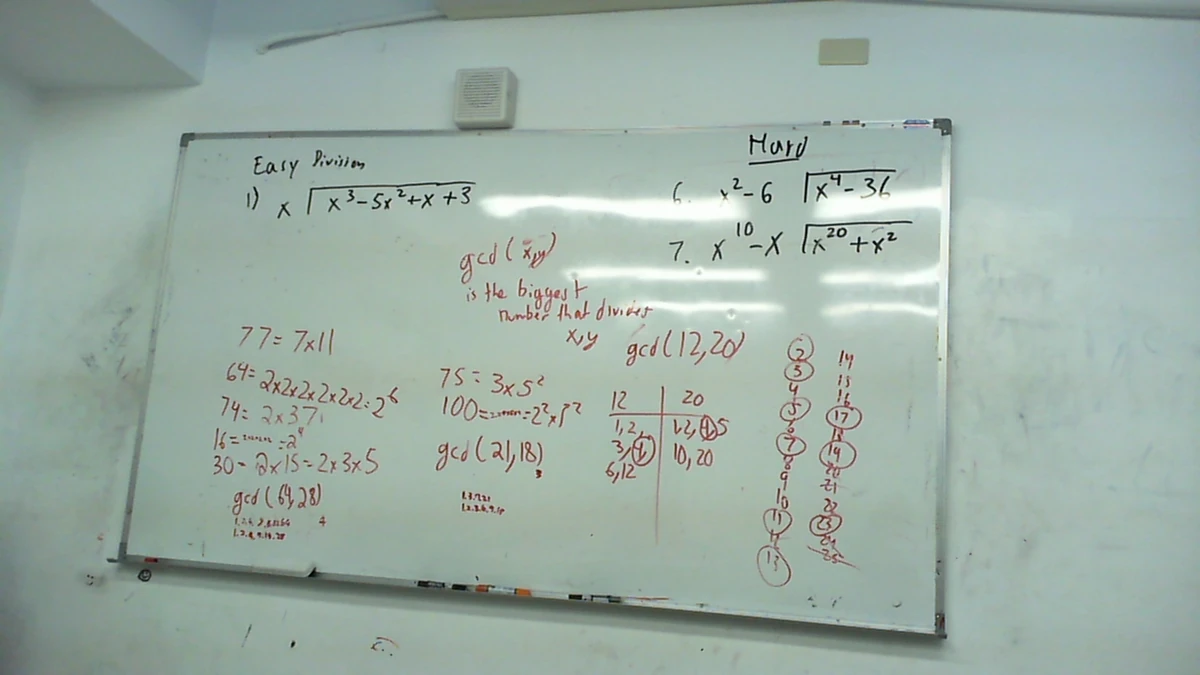 Easy Division
1) x x³-5x²+x+3
Hard
6. x²-6 x⁴-36
7. x¹⁰-x x²⁰+x²
gcd(x,y)
is the biggest
number that divides
x,y
77=7x11
64=2x2x2x2x2x2=2⁶
74=2x37
16= =2⁴
30=2x15=2x3x5
gcd(64,28)
4
75=3x5²
100= =2²x5²
gcd(21,18)
3
gcd(12,20)
12 20
1,2, 1,2,4,5
3,4, 10,20
6,12
2
3
4
5
6
7
8
9
10
11
12
13
14
15
16
17
18
19
20
21
22
23
24
25